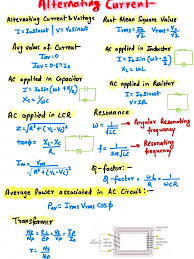 Alternating Current
Alternating Current & Voltage
I = I₀ sin ωt | V = V₀ sin ωt
Root Mean Square Value
Irms = I₀/√2 Vrms = V₀/√2
Avg Value of Current
Iav = 0
Iav = 0.637 I₀
AC applied in Inductor
I = I₀ sin (ωt - π/2)
X_L = ωL
AC applied in Capacitor
I = I₀ sin (ωt + π/2)
Xc = 1/ωC
AC applied in Resistor
I = I₀ sin ωt
V = IR
AC applied in LCR
Z = √R² + (X_L - Xc)²
tanϕ = X_L - Xc / R
Resonance
ω = 1/√LC → Angular Resonating frequency
f = 1/2π√LC → Resonating frequency
Q-factor :-
Q-factor = ωL/R = 1/ωCR
Average Power associated in AC Circuit :-
Pav = Irms Vrms cosϕ
Transformer